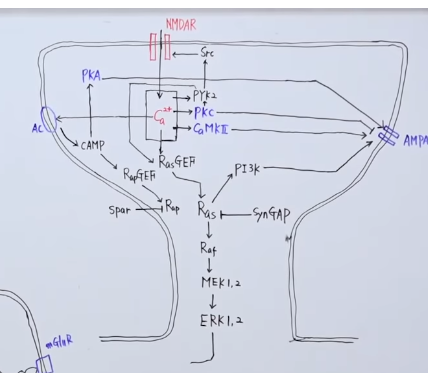 NMDAR
Src
PKA
PYK2
Ca²⁺
PKC
AC
CaMKII
AMPA
cAMP
RasGEF
RapGEF
PI3K
Spar
Rap
Ras
SynGAP
Raf
MEK1,2
ERK1,2
mGluR